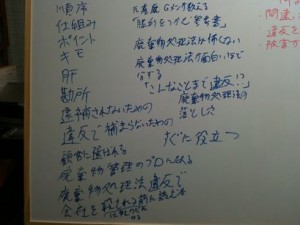 順序
仕組み
ポイント
キモ
肝
勘所
逮捕されないための
違反で捕まらないための
顧客に選ばれる
廃棄物管理のプロになれる
廃棄物処理法違反で
会社を
元産廃Gメンが教える
廃棄物処理法は怖くない
廃棄物処理法が面白いほど
分かる
「こんなことまで違反!
廃棄物処理法の
落とし穴
すぐに役立つ
間違
違反を